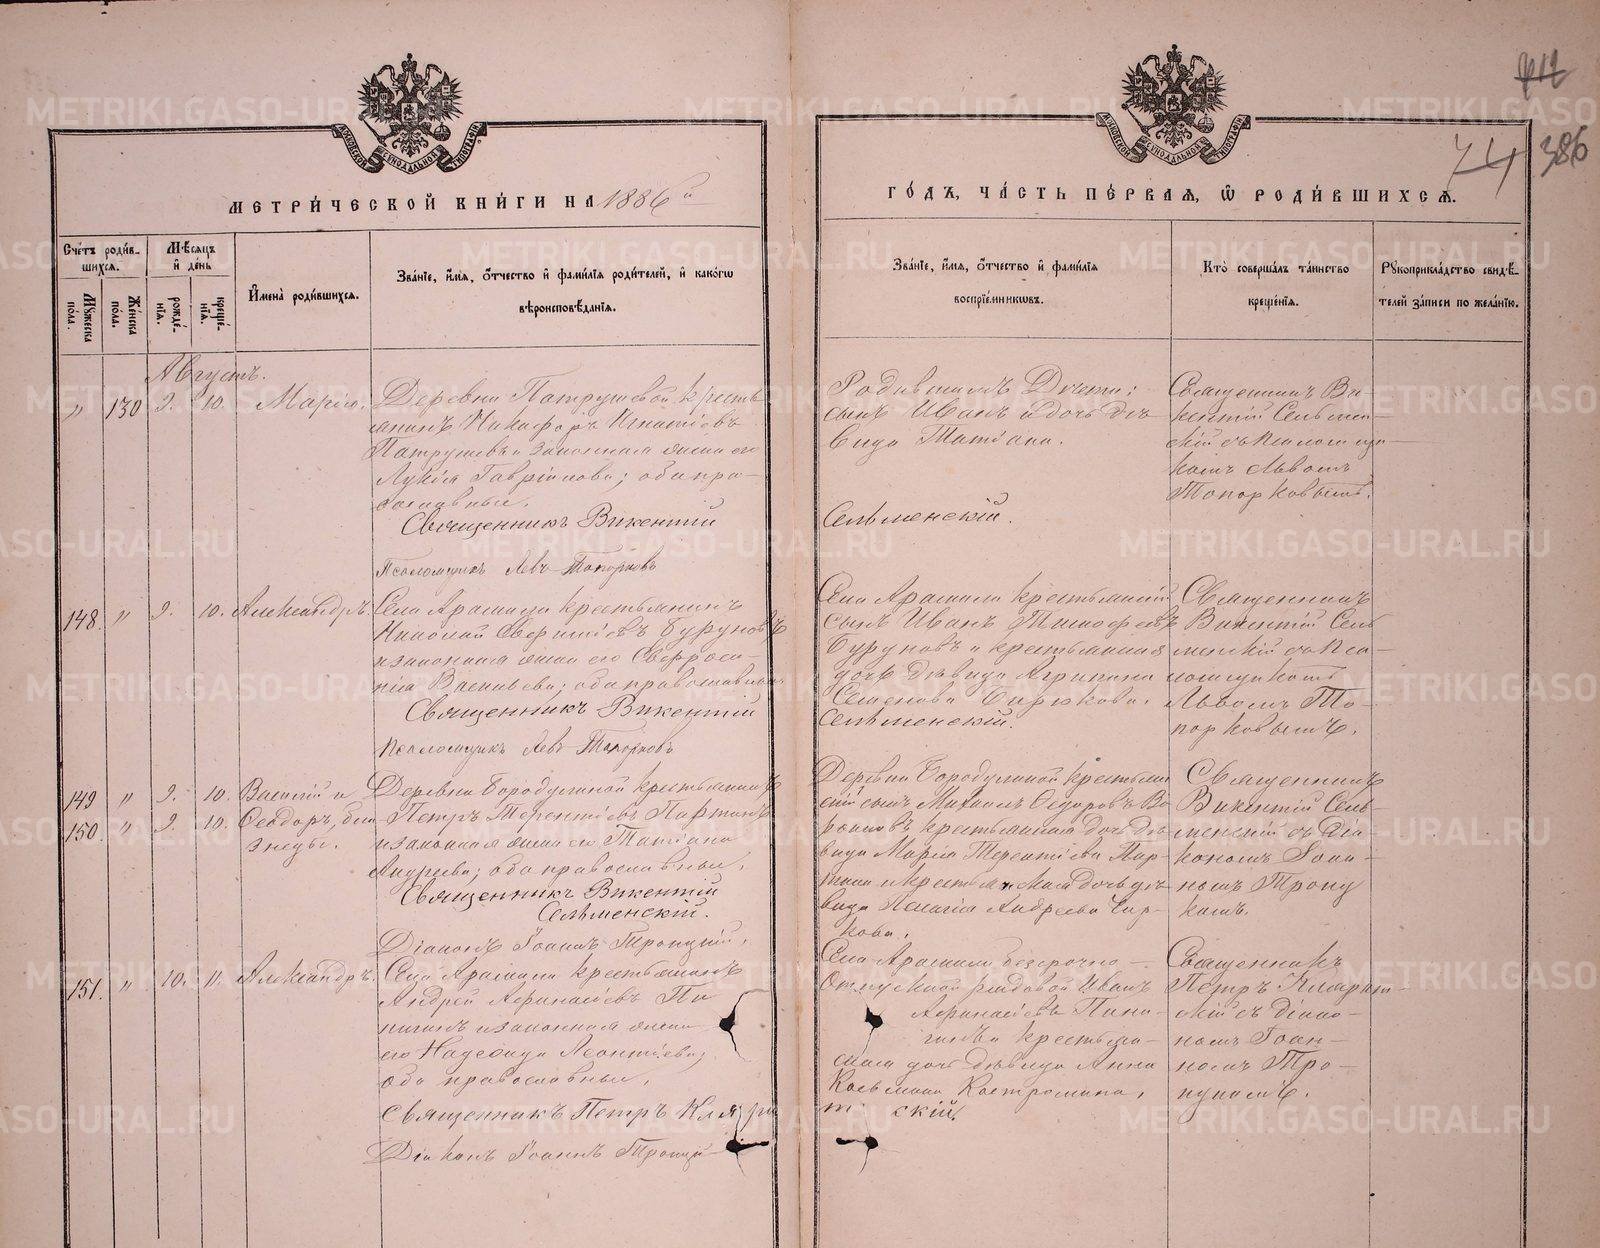 МЕТРИ́ЧЕСКОЙ КНИ́ГИ НА 1886й
ГО́ДЪ, ЧА́СТЬ ПЕ́РВАЯ, Ѡ РОДИ́ВШИХСѦ.
412
74
386
Сче́тъ роди́в-
шихсѧ.
Мꙋ́жеска по́ла.
Же́нска по́ла.
Мѣ́сѧцъ
и҆ де́нь
рожде́-
нїѧ.
креще́-
нїѧ.
И҆мена̀ роди́вшихсѧ.
Зва́нїе, и҆́мѧ, ѻ҆́тчество и҆ фами́лїѧ роди́телей, и҆ како́гѡ
вѣроисповѣ́данїѧ.
Зва́нїе, и҆́мѧ, ѻ҆́тчество и҆ фами́лїѧ
воспрїе́мникѡвъ.
Кто̀ соверша́лъ та́инство
креще́нїѧ.
Рꙋкоприкла́дство свидѣ́-
телей за́писи по жела́нїю.
Августъ.
„ 130 9. 10. Марія.
Деревни Патрушевой кресть
янинъ Никифоръ Игнатіевъ
Патрушевъ и законная жена его
Лукія Гавріилова; оба пра-
вославные.
Священникъ Викентій
Сельменскій.
Псаломщикъ Левъ Топорковъ
Родившимъ Дѣти:
сынъ Иванъ и дочь дѣ-
вица Татіана.
Священникъ Ви-
кентій Сельмен-
скій съ псаломщи-
комъ Львомъ
Топорковымъ.
148. „ 9. 10. Александръ.
Села Арамили крестьянинъ
Николай Евфиміевъ Буруновъ
и законная жена его Евфроси-
нія Васильева; оба православные
Священникъ Викентій
Сельменскій.
Псаломщикъ Левъ Топорковъ
Села Арамили крестьянскій
сынъ Иванъ Тимофеевъ
Буруновъ и крестьянская
дочь дѣвица Агрипина
Семенова Бирюкова.
Священникъ
Викентій Сель
менскій съ пса-
ломщикомъ
Львомъ То-
порковымъ.
149 „ 9. 10. Василій и
150. „ 9. 10. Ѳеодоръ, бли-
знецы.
Деревни Бородулиной крестьянинъ
Петръ Терентіевъ Паркинъ
и законная жена его Татіана
Андреева; оба православные.
Священникъ Викентій
Сельменскій.
Діаконъ Іоаннъ Троицкій.
Деревни Бородулиной крестьян
скій сынъ Михаилъ Ѳедоровъ
крестьянская дочь дѣ-
вица Марія Терентіева Пар-
кина и крестьянская дочь дѣ-
вица Пелагія Андреева Чир-
кова.
Священникъ
Викентій Сель-
менскій съ Діа-
кономъ Іоан-
номъ Троиц
кимъ.
151. „ 10. 11. Александръ.
Села Арамили крестьянинъ
Андрей Афанасіевъ Пи
нигинъ и законная жена
его Надежда Леонтіева;
оба православные.
Священникъ Петръ Кляри
т скій.
Діаконъ Іоаннъ Троицк
Села Арамили безсрочно-
отпускной рядовой Иванъ
Афанасіевъ Пини-
гинъ и крестьян-
ская дочь дѣвица Анна
Косьмина Костромина.
Священникъ
Петръ Кларит-
скій съ Діако-
номъ Іоан-
номъ Тро-
ицкимъ.
METRIKI.GASO-URAL.RU